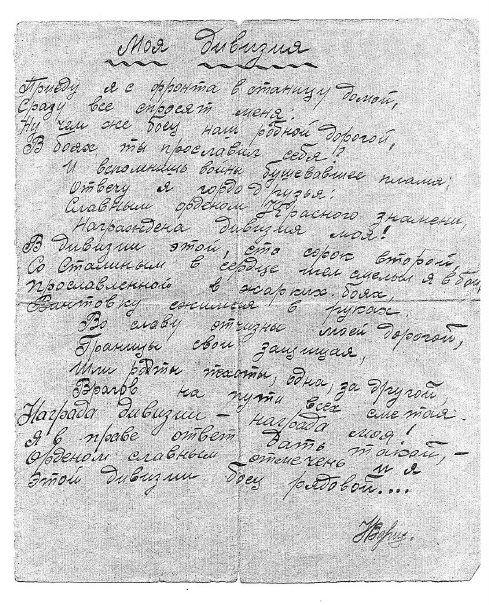 Моя дивизия
Приеду я с фронта в станицу домой,
Сразу все спросят меня:
Ну чем же боец наш родной дорогой,
В боях ты прославил себя!?
И вспомнишь войны бушевавшее пламя;
Отвечу я гордо друзья:
Славным орденом Красного знамени,
Награждена дивизия моя!
В дивизии этой, сто сорок второй,
Со Сталиным в сердце шел смелым я в бой,
прославленной в жарких боях,
Винтовку сжимая в руках.
Во славу отчизны моей дорогой,
Границы свои защищая,
Шли роты пехоты, одна, за другой,
Врагов на пути всех сметая.
Награда дивизии – награда моя!
Я в праве ответ дать такой, –
Орденом славным отмечен и я
Этой дивизии боец рядовой....